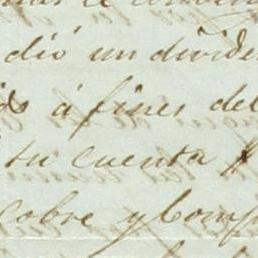 dió un divide
á fines del
tu cuenta
cobre y comp